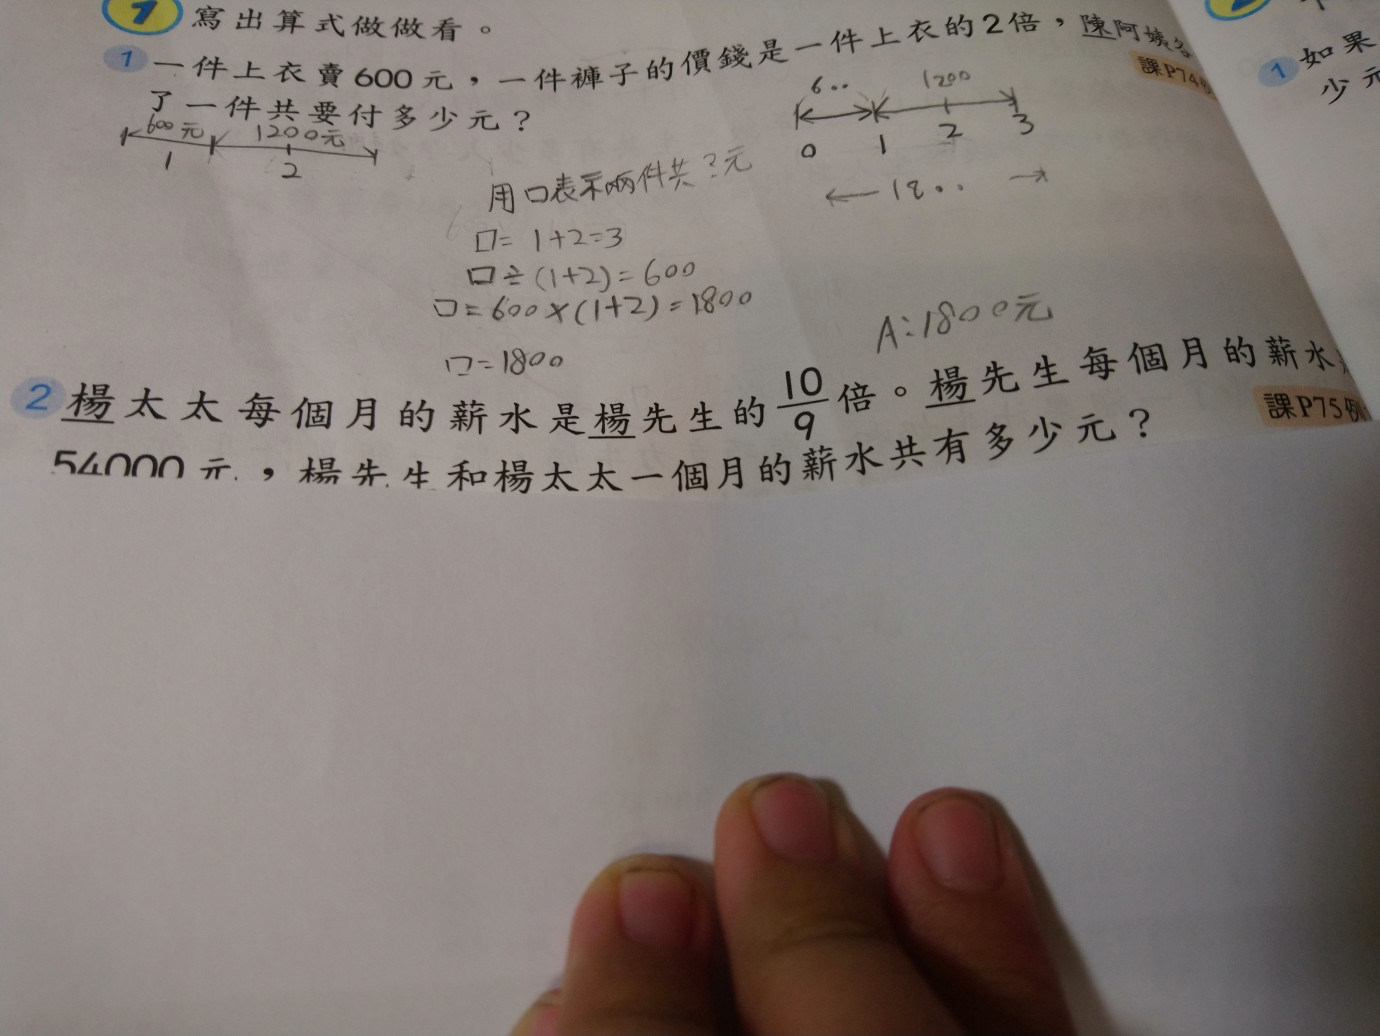 1 寫出算式做做看。
1 一件上衣賣600元，一件褲子的價錢是一件上衣的2倍，陳阿姨各
課P74
了一件共要付多少元？
600元 1200元
1 2
6.. 1200
0 1 2 3
18..
用口表示兩件共?元
口= 1+2=3
口÷(1+2)=600
口=600×(1+2)=1800
口=1800
A:1800元
2 楊太太每個月的薪水是楊先生的10/9倍。楊先生每個月的薪水
課P75例
54000元，楊先生和楊太太一個月的薪水共有多少元？
1 如果
少元